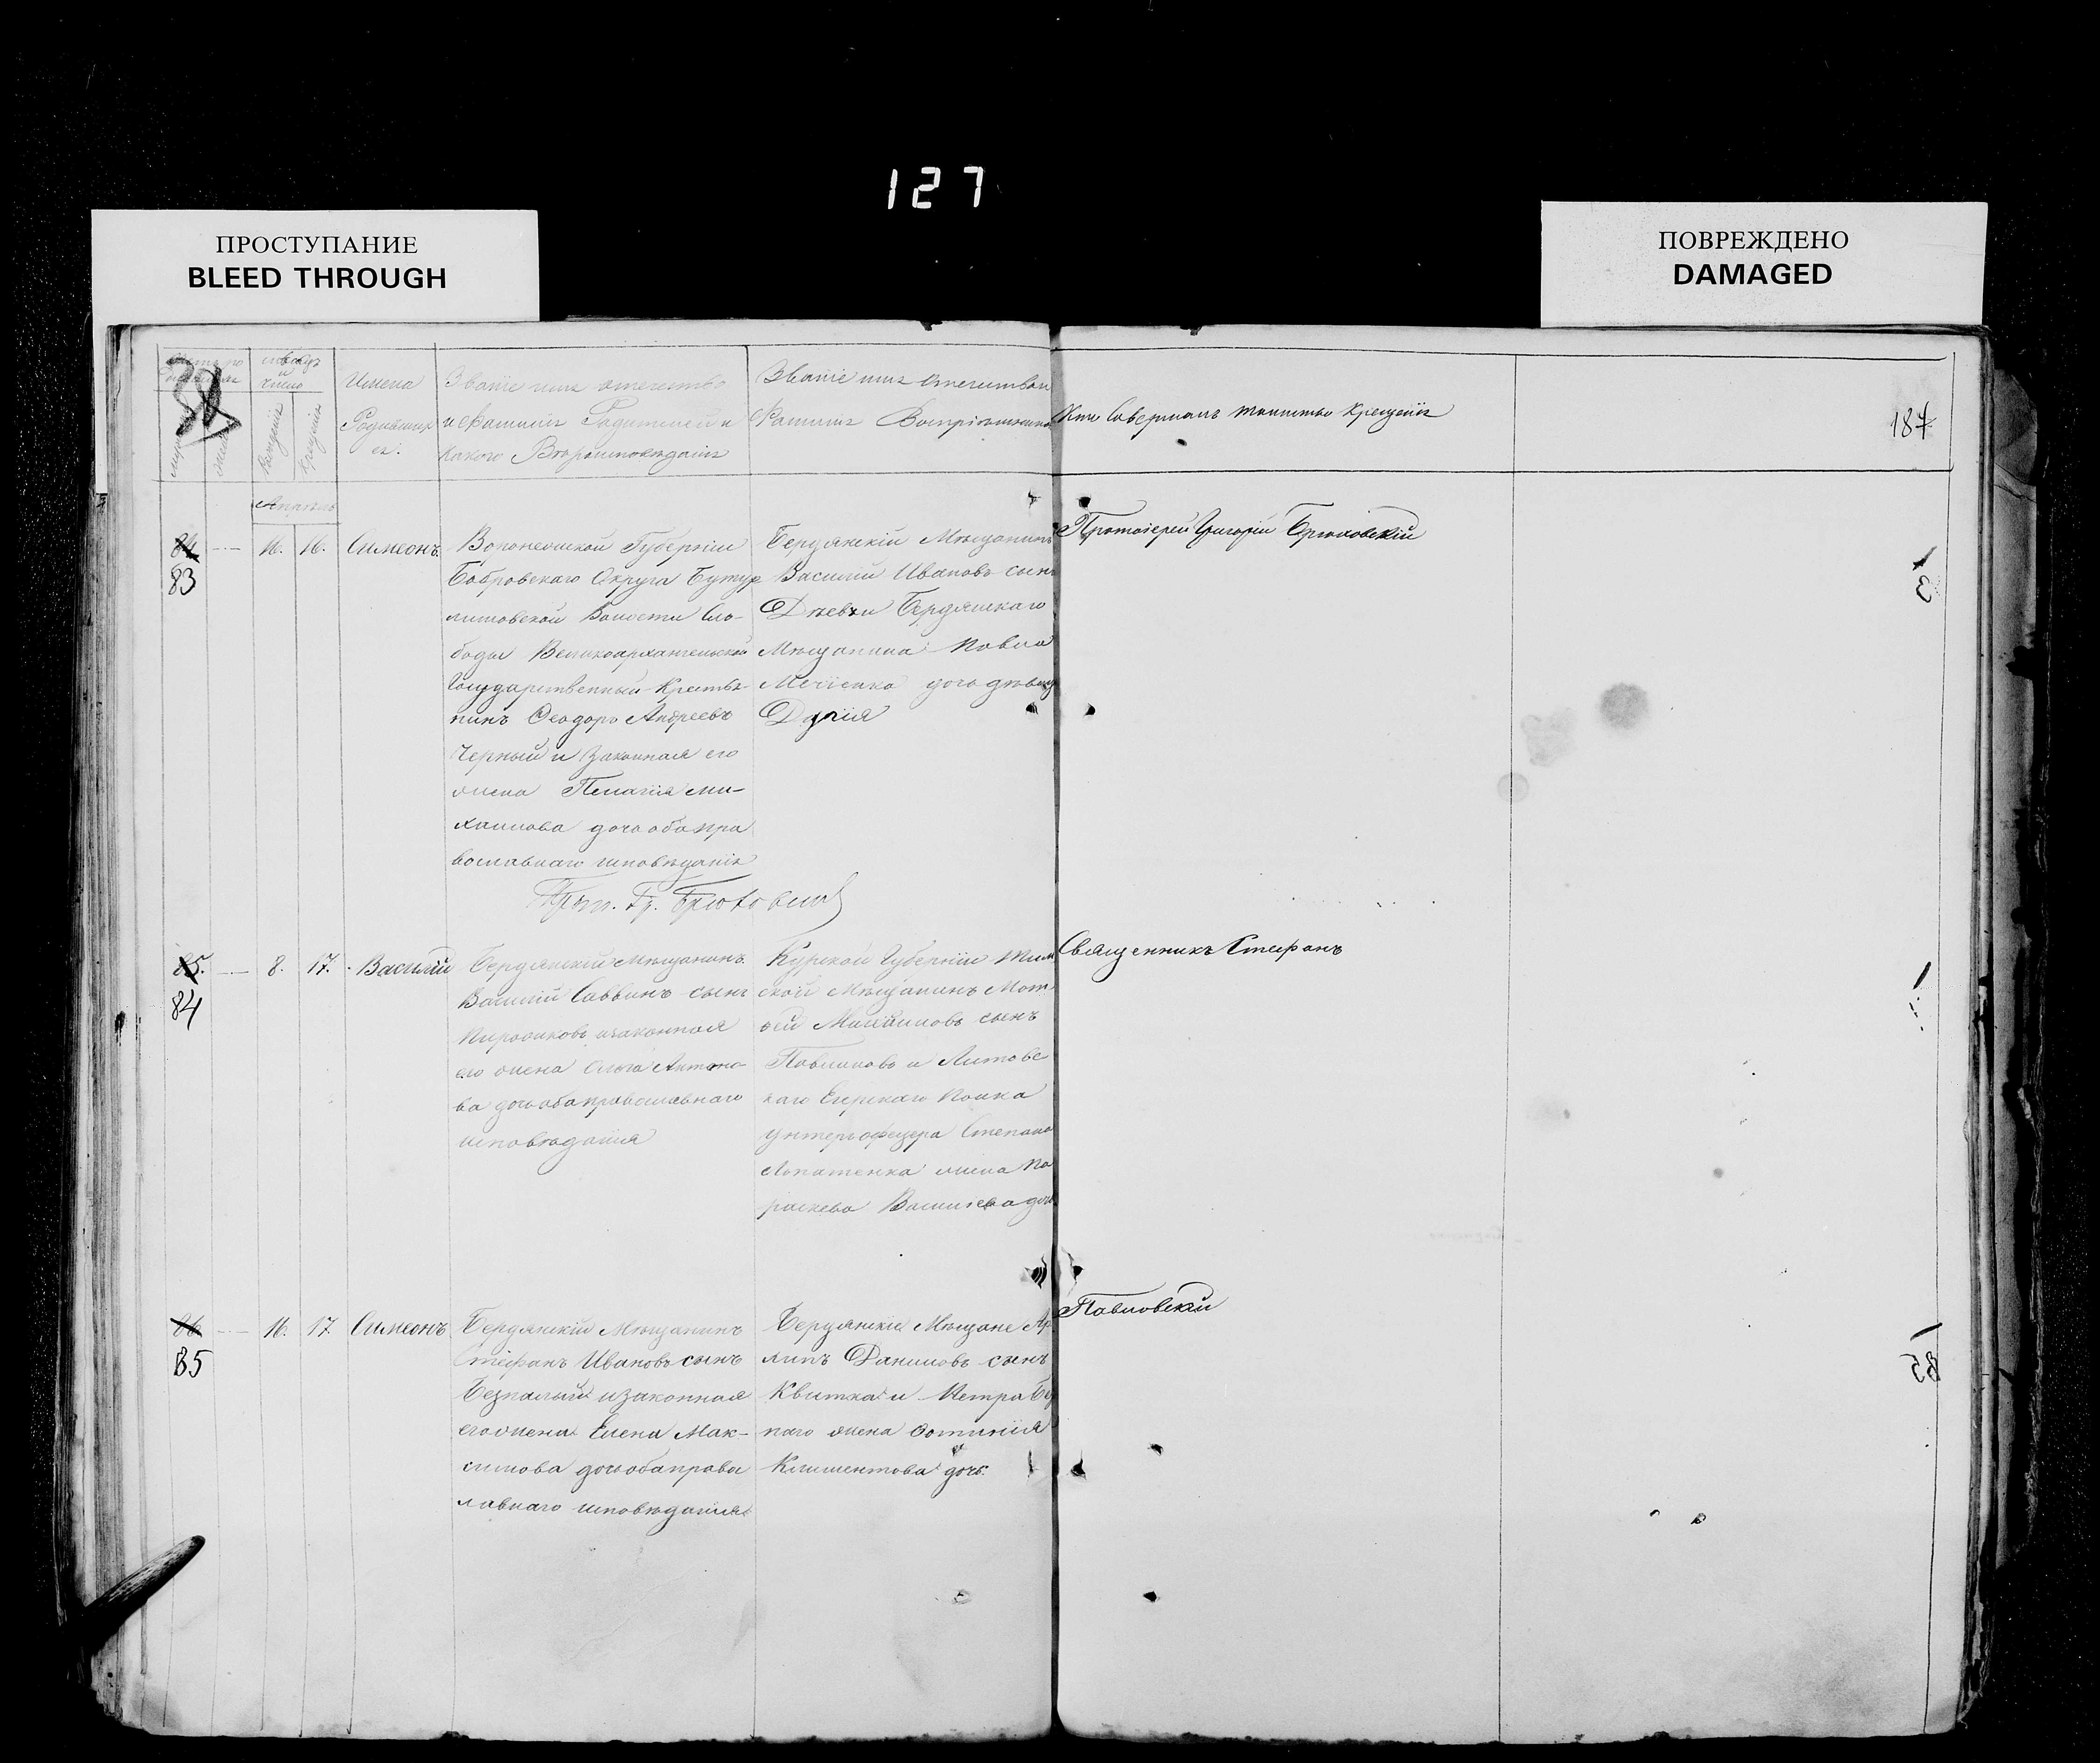 127
ПРОСТУПАНИЕ
BLEED THROUGH
ПОВРЕЖДЕНО
DAMAGED
Имена
Родивших
ся.
Званіе имя отечество
и Фамилія Родителей и
какого Вѣроисповѣданія
Званіе имя отечество и
Фамилія Воспріемников
Кто совершалъ таинство крещенія
187
Апрѣль
84 16. 16. Симеонъ.
83
Воронежской Губерніи
Бобровскаго Округа Бутур
линовской Волости Сло-
боды Великоархангельской
Государственный Крестья-
нинъ Феодоръ Андреевъ
Черный и Законная его
жена Пелагія Ми-
хаилова дочь оба пра
вославнаго исповѣданія
Бердянскій Мѣщанинъ
Василій Ивановъ сынъ
Бердянскаго
Мѣщанина Павла
дочь дѣвица
Дарія
Протоіерей Григорій Брюховскій
Прот. Гр. Брюховскій
85. 8. 17. Василій
84
Бердянскій Мѣщанинъ
Василій Саввинъ сынъ
изаконная
его жена Ольга Антоно-
ва дочь оба православнаго
исповѣданія
Курской Губерніи Тим
ской Мѣщанинъ Мат
фей Михайловъ сынъ
Павликовъ и Литовс
каго Егерскаго Полка
унтерьофецера Степана
Лопатенка жена Па
раскева Василіева дочь
Священникъ Стефанъ
86 16. 17 Симеонъ
85
Бердянскій Мѣщанинъ
Стефанъ Ивановъ сынъ
Безпалый изаконная
его жена Елена Мак-
симова дочь оба правос
лавнаго исповѣданія
Бердянскіе Мѣщане
Даниловъ сынъ
Квитка и Петра
наго жена Фотинія
Климентова дочь.
Павловскій